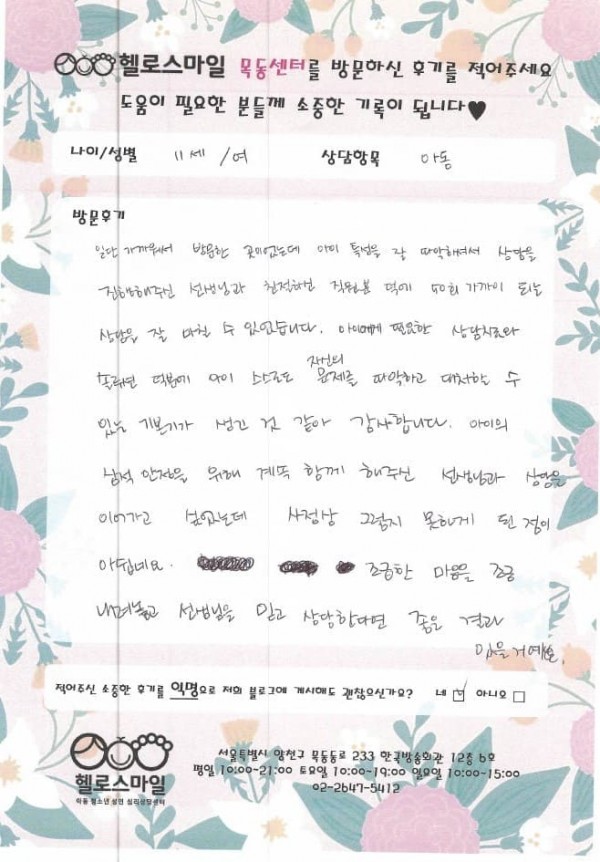 헬로스마일 목동센터를 방문하신 후기를 적어주세요
도움이 필요한 분들께 소중한 기록이 됩니다♥
나이/성별 11세 /여 상담항목 아동
방문후기
일단 가까워서 방문한 곳이었는데 아이 특성을 잘 파악해주셔서 상담을
진행해주신 선생님과 친절하신 직원분 덕에 40회 가까이 되는
상담을 잘 마칠 수 있었습니다. 아이에게 필요한 상담치료와
솔루션 덕분에 아이 스스로도 자신의 문제를 파악하고 대처할 수
있는 기본기가 생긴 것 같아 감사합니다. 아이의
심적 안정을 위해 계속 함께 해주신 선생님과 상담을
이어가고 싶었는데 사정상 그렇지 못하게 된 점이
아쉽네요. 조급한 마음을 조금
내려놓고 선생님을 믿고 상담한다면 좋은 결과
있을 거예요.
적어주신 소중한 후기를 익명으로 저희 블로그에 게시해도 괜찮으신가요? 네 ☑ 아니오 □
헬로스마일
아동 청소년 성인 심리상담센터
서울특별시 양천구 목동동로 233 한국방송회관 12층 6호
평일 10:00-21:00 토요일 10:00-19:00 일요일 10:00-15:00
02-2647-5412